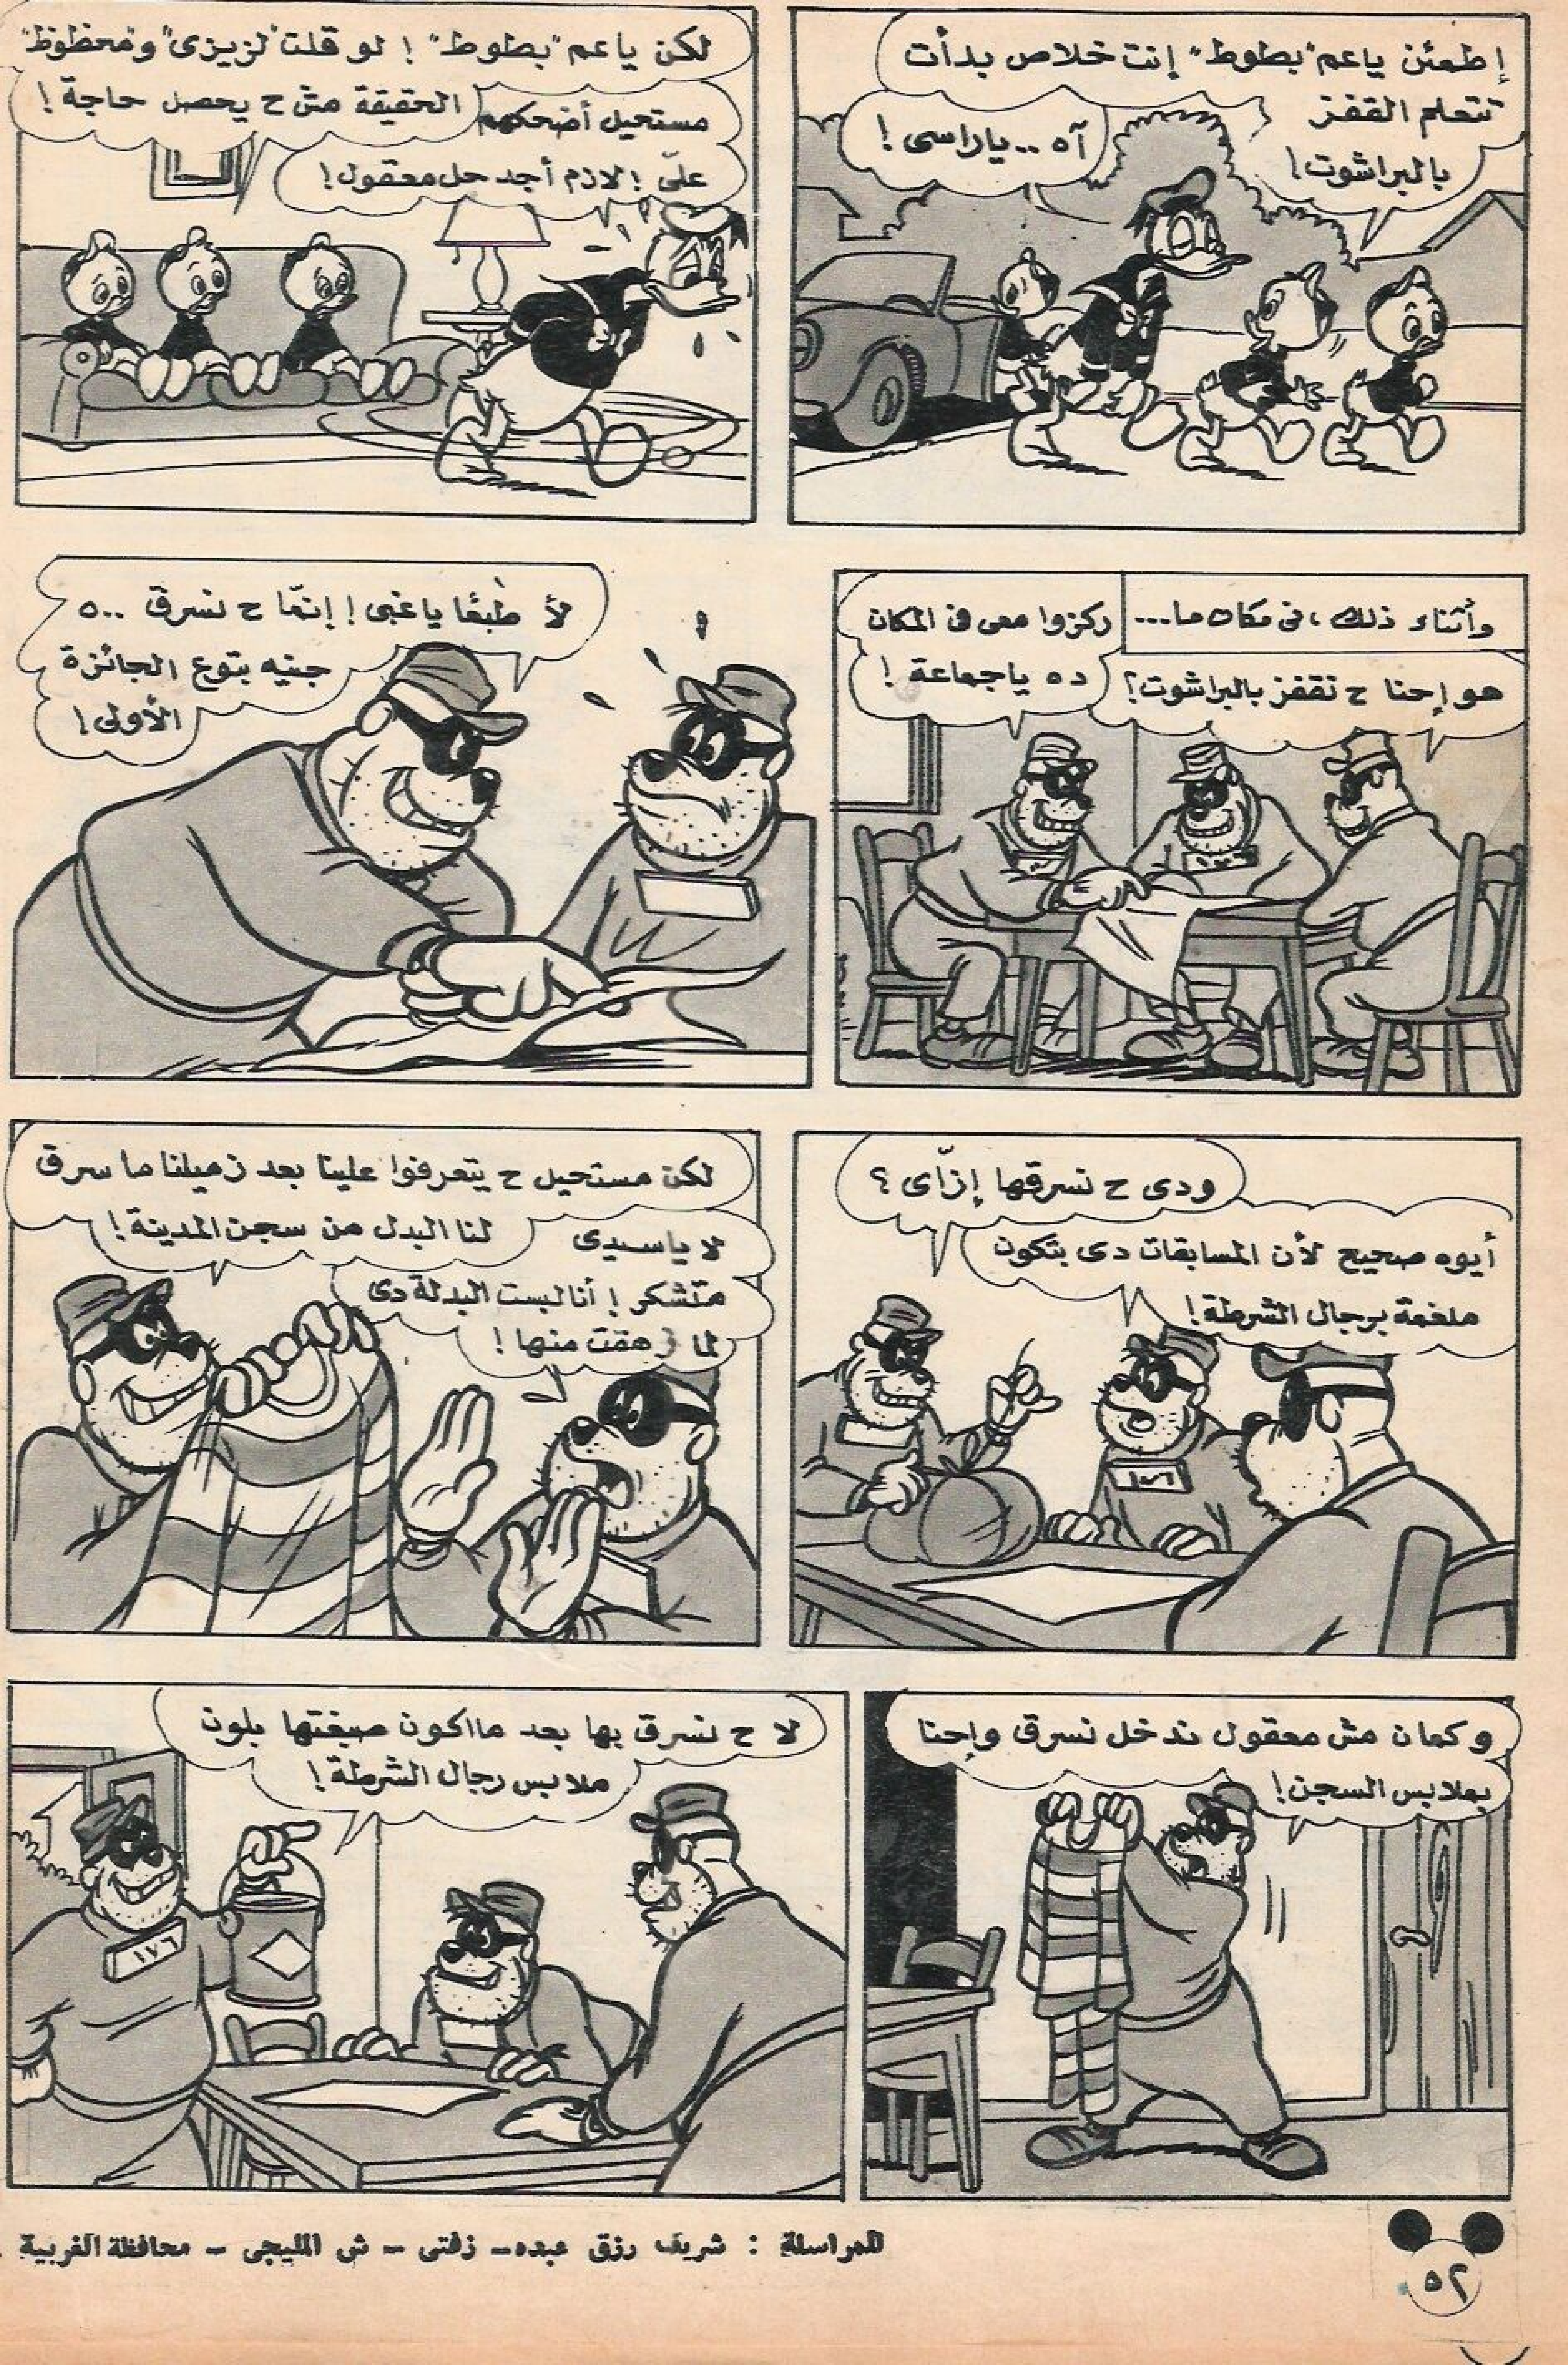 إطمئن ياعم "بطوط" إنت خلاص بدأت
تتعلم القفز
بالبراشوت!
آه .. ياراسى !
لكن ياعم "بطوط" ! لو قلت "لزيزى" و"محظوظ"
الحقيقة مش ح يحصل حاجة !
مستحيل أضحكهم
علىّ ! لازم أجد حل معقول !
وأثناء ذلك ، فى مكان ما...
هو إحنا ح نقفز بالبراشوت ؟
ركزوا معى فى المكان
ده ياجماعة !
لأ طبعًا ياغبى ! إنمّا ح نسرق ٥٠٠
جنيه بتوع الجائزة
الأولى !
ودى ح نسرقها إزّاى ؟
أيوه صحيح لأن المسابقات دى بتكون
ملغمة برجال الشرطة !
١٧٦
لكن مستحيل ح يتعرفوا علينا بعد زميلنا ما سرق
لنا البدل من سجن المدينة !
لا ياسيدى
متشكر ! أنا لبست البدلة دى
لما زهقت منها !
وكمان مش معقول ندخل نسرق وإحنا
بملابس السجن !
لا ح نسرق بها بعد مااكون صبغتها بلون
ملابس رجال الشرطة !
١٧٦
للمراسلة : شريف رزق عبده - زفتى - ش المليجى - محافظة الغربية .
٥٢